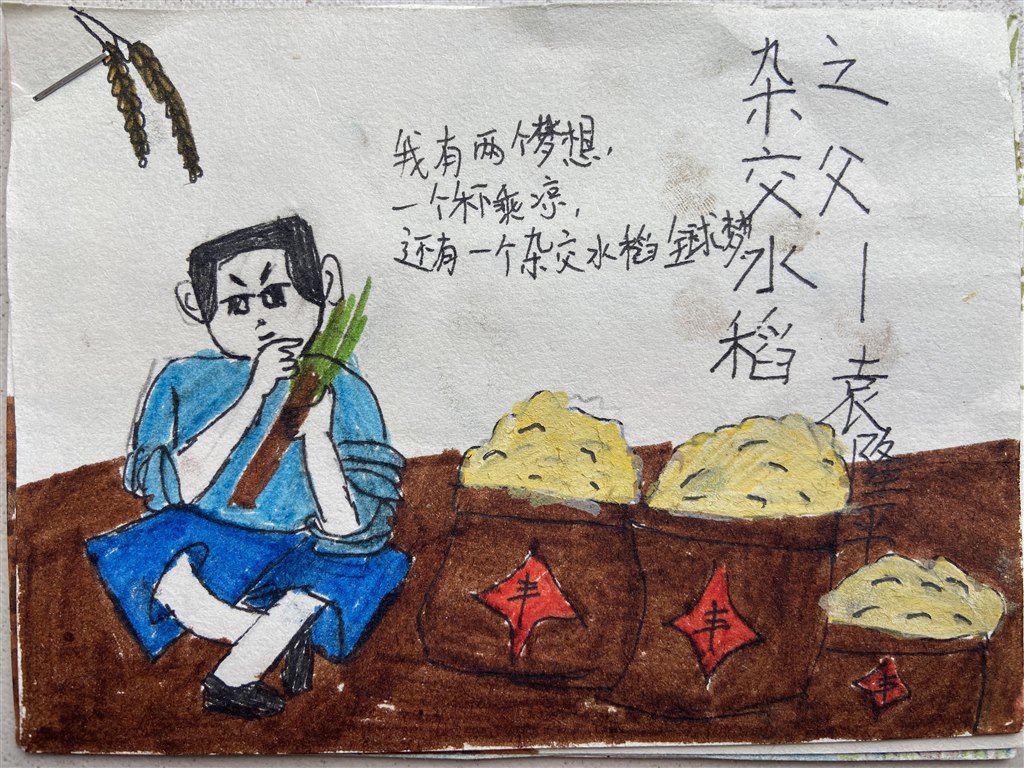 我有两个梦想,
一个禾下乘凉,
还有一个杂交水稻全球梦
杂交水稻
之父—袁隆平
丰
丰
丰